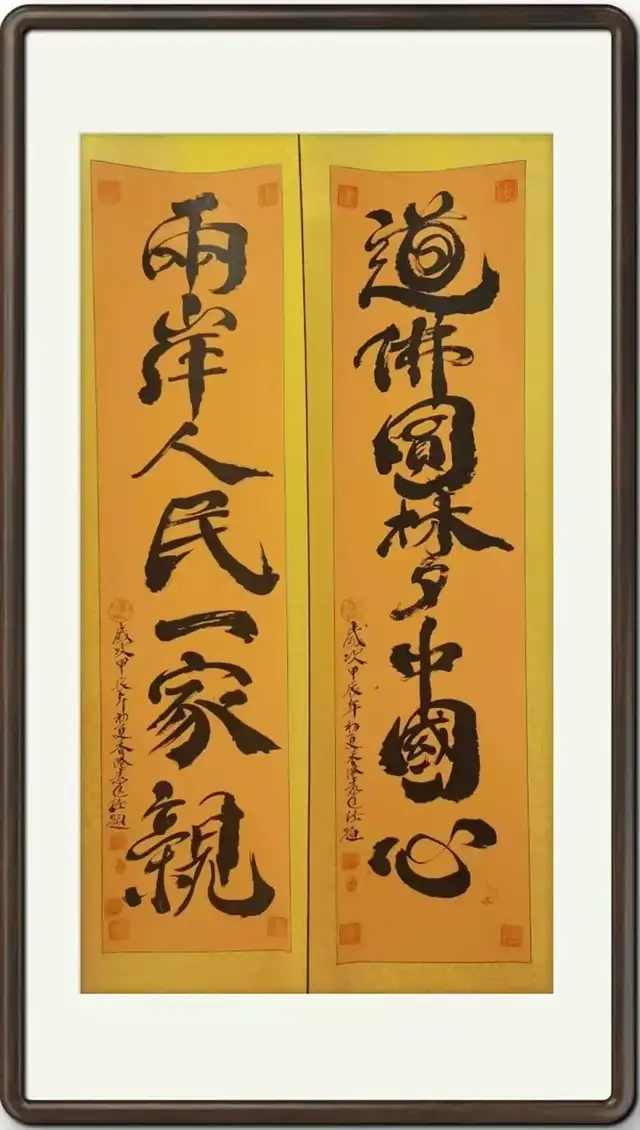 道佛圓梦中國心
歲次甲辰年初夏香港題
兩岸人民一家親
歲次甲辰年初夏香港題